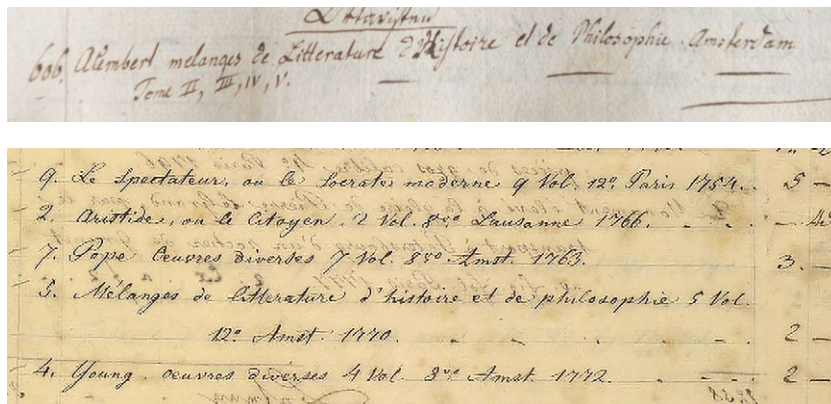 606. Alembert mélanges de Litterature d'Histoire et de Philosophie Amsterdam
Tome II, III, IV, V.
9. Le Spectateur, ou le Socrate moderne 9 Vol. 12º Paris 1754. 5 -
2. Aristide, ou le Citoyen, 2 Vol. 8vo Lausanne 1766.
7. Pope Œuvres diverses 7 Vol. 8vo Amst. 1763. 3. -
5. Mélanges de litterature d'histoire et de philosophie 5 Vol.
12º Amst. 1770. 2 -
4. Young. œuvres diverses 4 Vol. 8vo Amst. 1772. 2 -